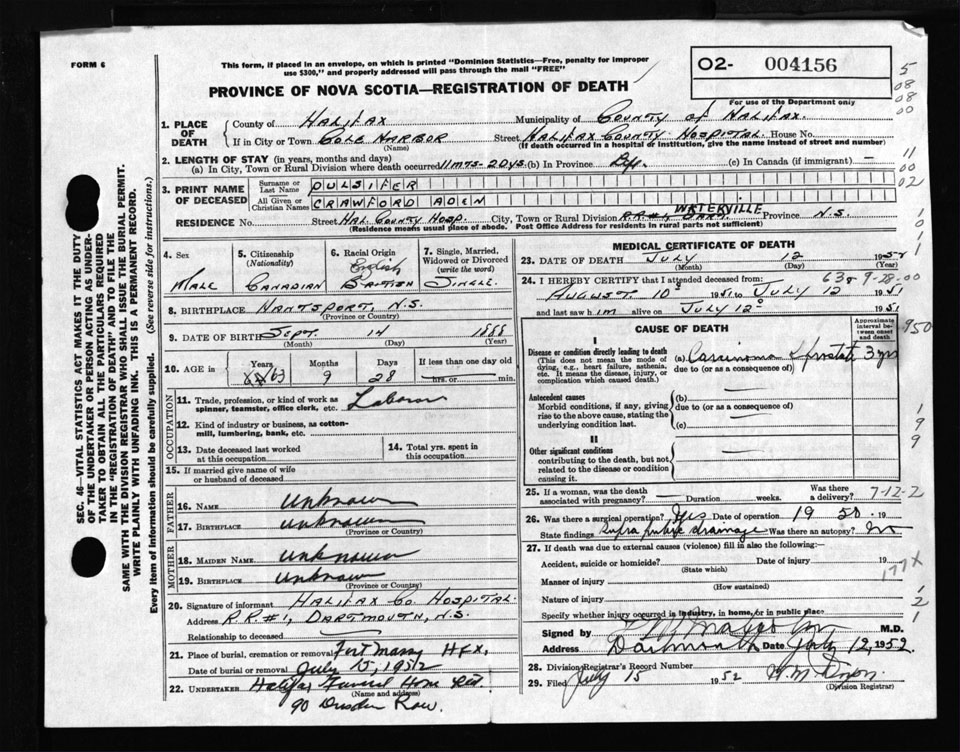 FORM 6
This form, if placed in an envelope, on which is printed "Dominion Statistics—Free, penalty for improper
use $300," and properly addressed will pass through the mail "FREE"
O2- 004156
For use of the Department only
PROVINCE OF NOVA SCOTIA—REGISTRATION OF DEATH
1. PLACE OF DEATH
County of HALIFAX Municipality of COUNTY OF HALIFAX.
If in City or Town COLE HARBOR Street HALIFAX COUNTY HOSPITAL House No.
(Name) (If death occurred in a hospital or institution, give the name instead of street and number)
2. LENGTH OF STAY (in years, months and days)
(a) In City, Town or Rural Division where death occurred 11 mts - 20 ys. (b) In Province Life. (c) In Canada (if immigrant) —
3. PRINT NAME OF DECEASED
Surname or Last Name PULSIFER
All Given or Christian Names CRAWFORD ADEN
WATERVILLE
RESIDENCE No. Street HAL. COUNTY HOSP. City, Town or Rural Division R.R.#1, DART. Province N.S.
(Residence means usual place of abode. Post Office Address for residents in rural parts not sufficient)
4. Sex
MALE
5. Citizenship
(Nationality)
CANADIAN
6. Racial Origin
English
BRITISH
7. Single, Married,
Widowed or Divorced
(write the word)
SINGLE.
8. BIRTHPLACE HANTSPORT, N.S.
(Province or Country)
9. DATE OF BIRTH SEPT. 14 1888
(Month) (Day) (Year)
10. AGE in
Years 63
Months 9
Days 28
If less than one day old
hrs. or min.
OCCUPATION
11. Trade, profession, or kind of work as Laborer
spinner, teamster, office clerk, etc.
12. Kind of industry or business, as cotton-
mill, lumbering, bank, etc.
13. Date deceased last worked
at this occupation
14. Total yrs. spent in
this occupation
15. If married give name of wife
or husband of deceased
FATHER
16. NAME Unknown
17. BIRTHPLACE Unknown
(Province or Country)
MOTHER
18. MAIDEN NAME Unknown
19. BIRTHPLACE Unknown
(Province or Country)
20. Signature of informant HALIFAX CO. HOSPITAL.
Address R.R.#1, DARTMOUTH, N.S.
Relationship to deceased —
21. Place of burial, cremation or removal Fort Massey HFX,
Date of burial or removal July 15, 1952
22. UNDERTAKER Halifax Funeral Home Ltd.
(Name and address)
90 Dresden Row.
MEDICAL CERTIFICATE OF DEATH
23. DATE OF DEATH JULY 12 1952
(Month) (Day) (Year)
24. I HEREBY CERTIFY that I attended deceased from:
63 8 9-28-00
AUGUST 10 1951 to JULY 12 1951
and last saw him alive on JULY 12 1951
CAUSE OF DEATH
Approximate interval between onset and death
I
Disease or condition directly leading to death
(This does not mean the mode of
dying, e.g., heart failure, asthenia,
etc. It means the disease, injury, or
complication which caused death.)
(a) Carcinoma of prostate 3 yrs
due to (or as a consequence of)
Antecedent causes
Morbid conditions, if any, giving
rise to the above cause, stating the
underlying condition last.
(b)
due to (or as a consequence of)
(c)
II
Other significant conditions
contributing to the death, but not
related to the disease or condition
causing it.
25. If a woman, was the death
associated with pregnancy? — Duration weeks. Was there a delivery?
7-12-2
26. Was there a surgical operation? Yes Date of operation 1950. 19
State findings Supra pubic drainage Was there an autopsy? No
27. If death was due to external causes (violence) fill in also the following:—
Accident, suicide or homicide? Date of injury 19
(State which)
177X
Manner of injury
(How sustained)
Nature of injury
Specify whether injury occurred in industry, in home, or in public place
Signed by M.D.
Address Dartmouth Date July 12, 1952.
28. Division Registrar's Record Number
29. Filed July 15 1952 H.M. Dixon.
(Division Registrar)
5
08
08
00
11
00
02
950
SEC. 46—VITAL STATISTICS ACT MAKES IT THE DUTY
OF THE UNDERTAKER OR PERSON ACTING AS UNDER-
TAKER TO OBTAIN ALL THE PARTICULARS REQUIRED
IN THE "REGISTRATION OF DEATH" AND TO FILE THE
SAME WITH THE DIVISION REGISTRAR WHO SHALL ISSUE THE BURIAL PERMIT.
WRITE PLAINLY WITH UNFADING INK. THIS IS A PERMANENT RECORD.
Every item of information should be carefully supplied. (See reverse side for instructions.)